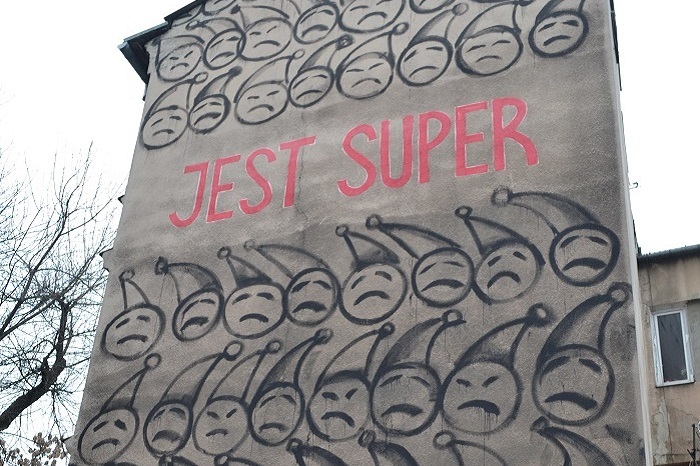 JEST SUPER